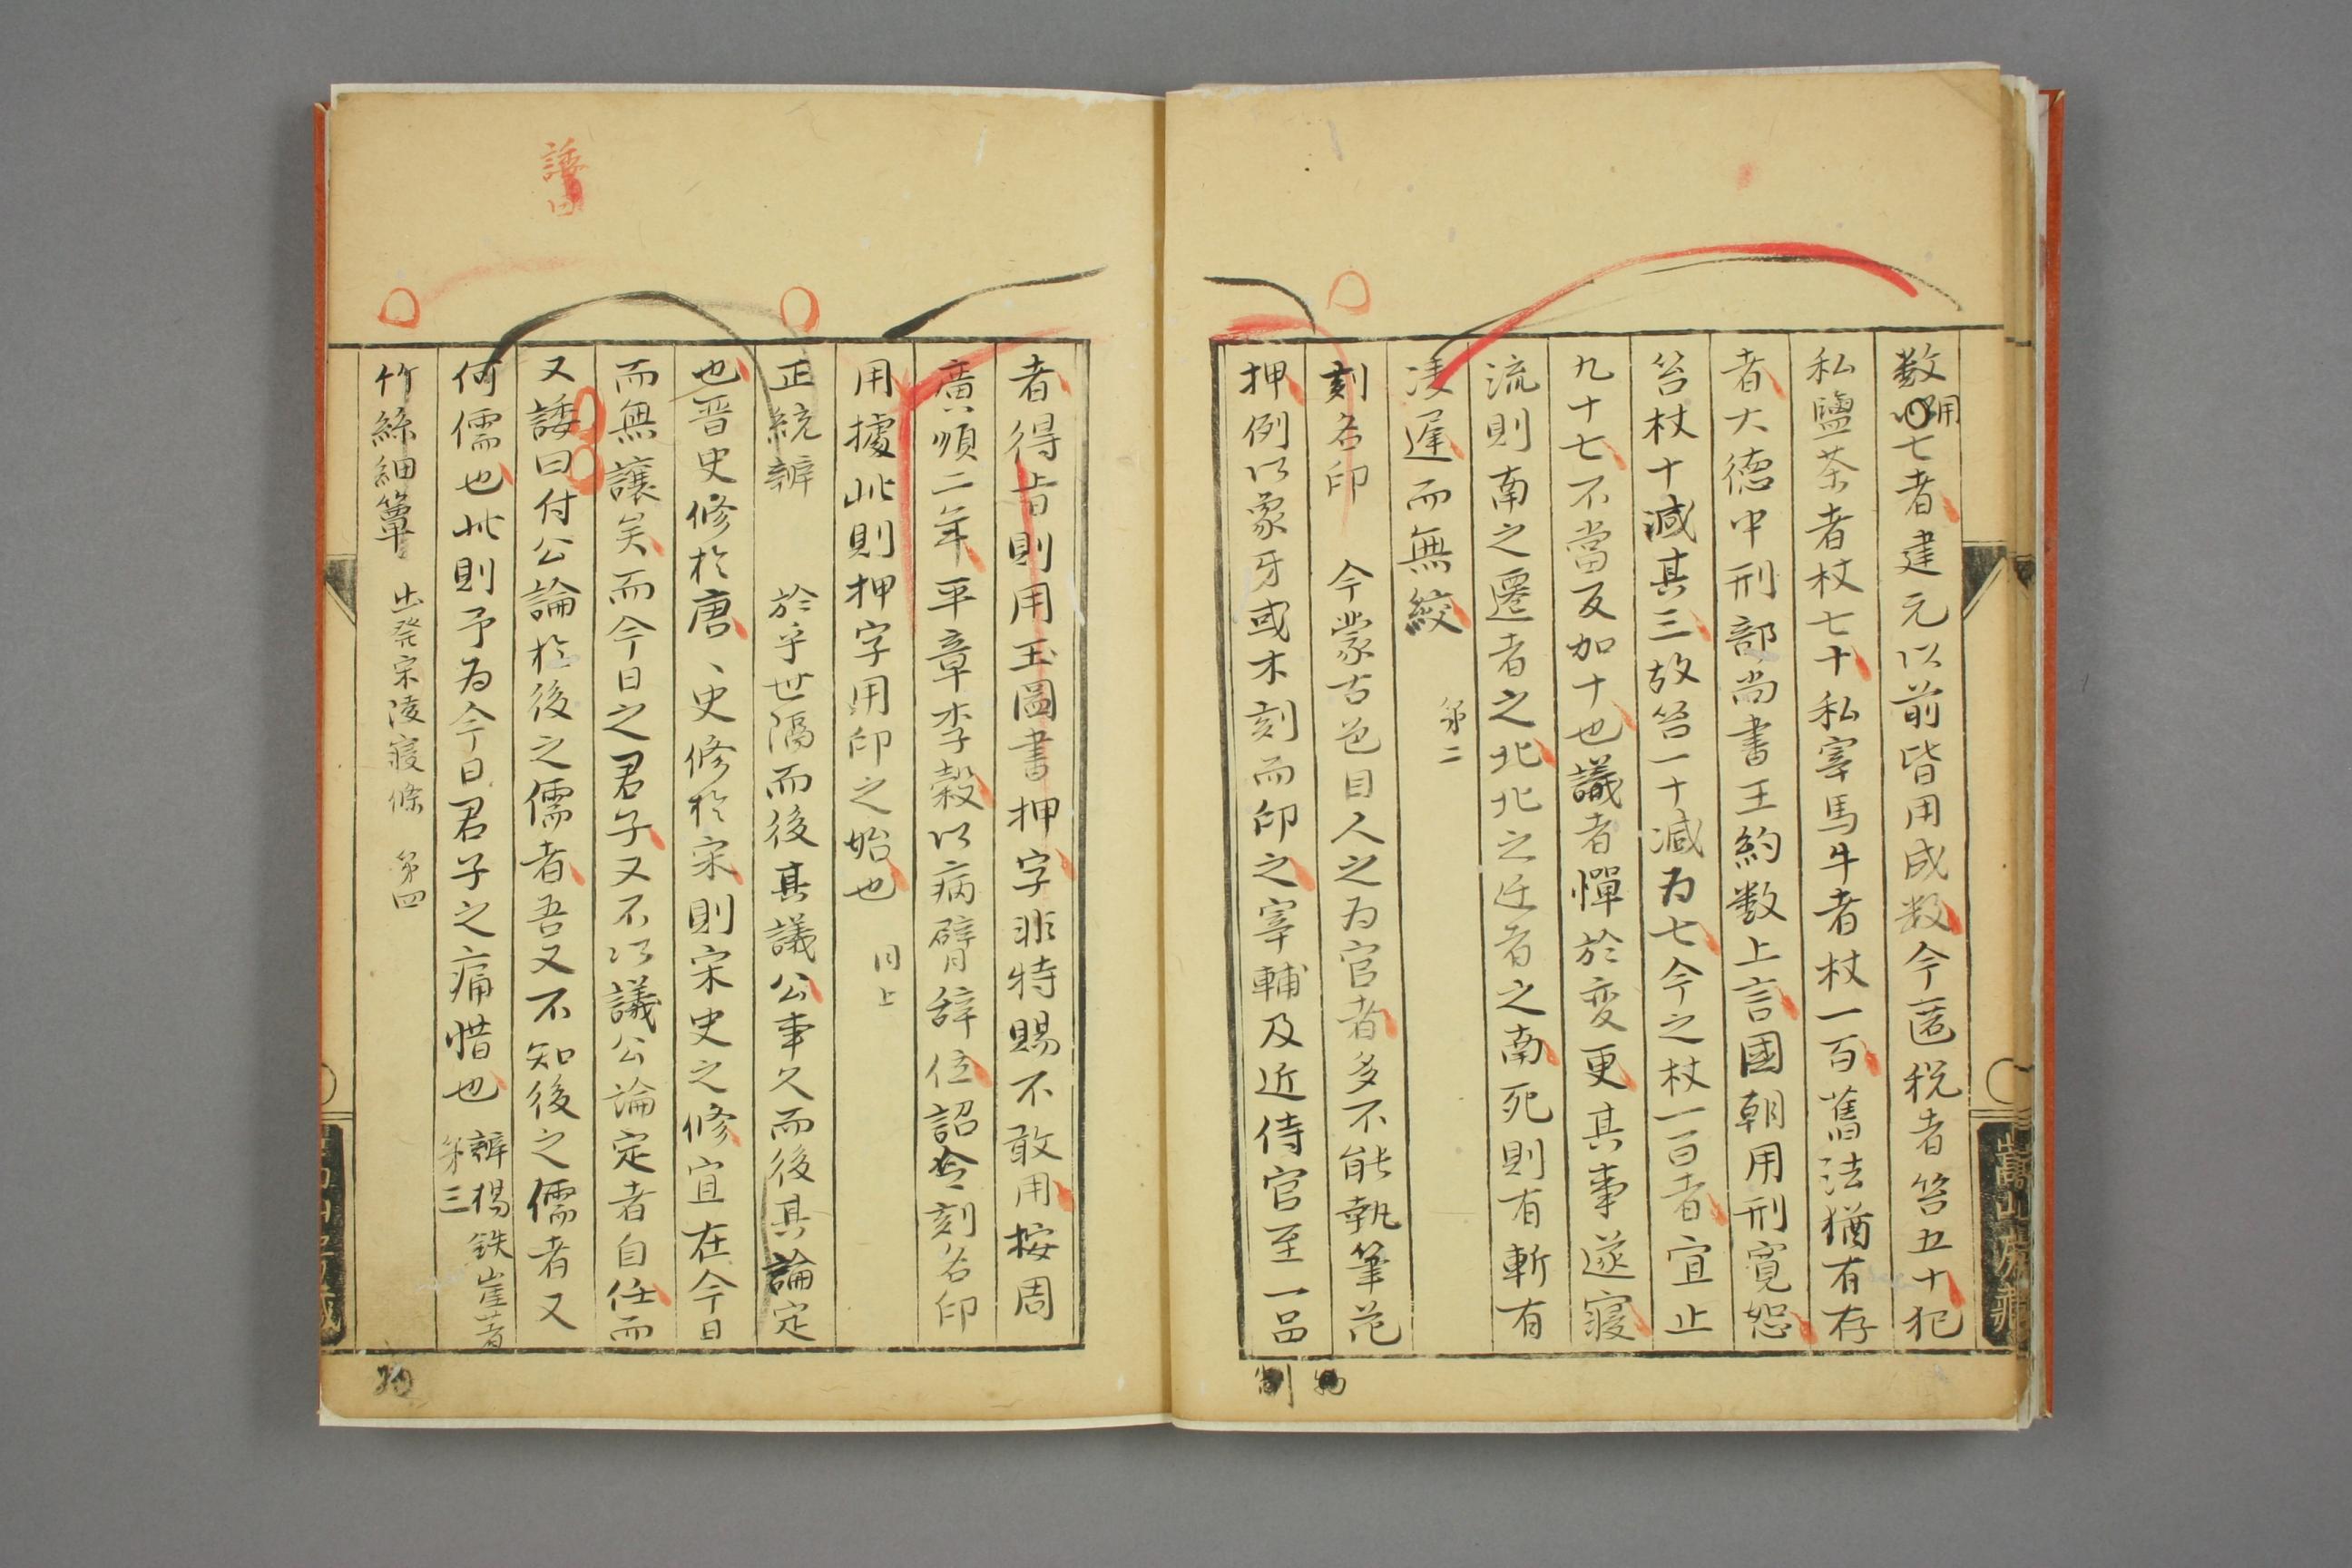 数用七者建元以前皆用成数今匿税者笞五十犯
私鹽茶者杖七十私宰馬牛者杖一百舊法猶有存
者大德中刑部尚書王約数上言國朝用刑寛恕
笞杖十減其三故笞一十減为七今之杖一百者宜止
九十七不當反加十也議者憚於変更其事遂寢
流則南之遷者之北北之迁者之南死則有斬有
凌遲而無絞 第二
刻名印 今蒙古色目人之为官者多不能執筆花
押例以象牙或木刻而印之宰輔及近侍官至一品
制
者得旨則用玉圖書押字非特賜不敢用按周
廣順二年平章李穀以病臂辞位詔令刻名印
用據此則押字用印之始也 同上
正統辨 於乎世隔而後其議公事久而後其論定
也晋史修於唐、史修於宋則宋史之修宜在今日
而無讓矣而今日之君子又不以議公論定者自任而
又諉曰付公論於後之儒者吾又不知後之儒者又
何儒也此則予为今日君子之痛惜也 辨楊鉄崖著 第三
竹絲細簟 出発宋陵寢條 第四
諉曰